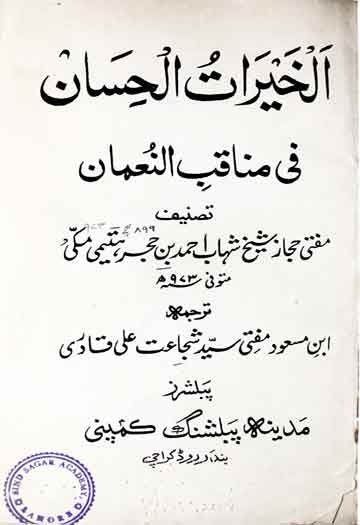 اَلْخَيْرَاتُ الْحِسَان
فی مناقبِ النُعمان
تصنیف
مفتی حجاز شیخ شہاب احمد بن حجر ہیتمی مکیؒ
متوفی ۹۷۳ھ
ترجمہ
ابن مسعود مفتی سید شجاعت علی قادری
پبلشرز
مدینہ پبلشنگ کمپنی
بندر روڈ کراچی
SIND SAGAR ACADEMY
LAHORE